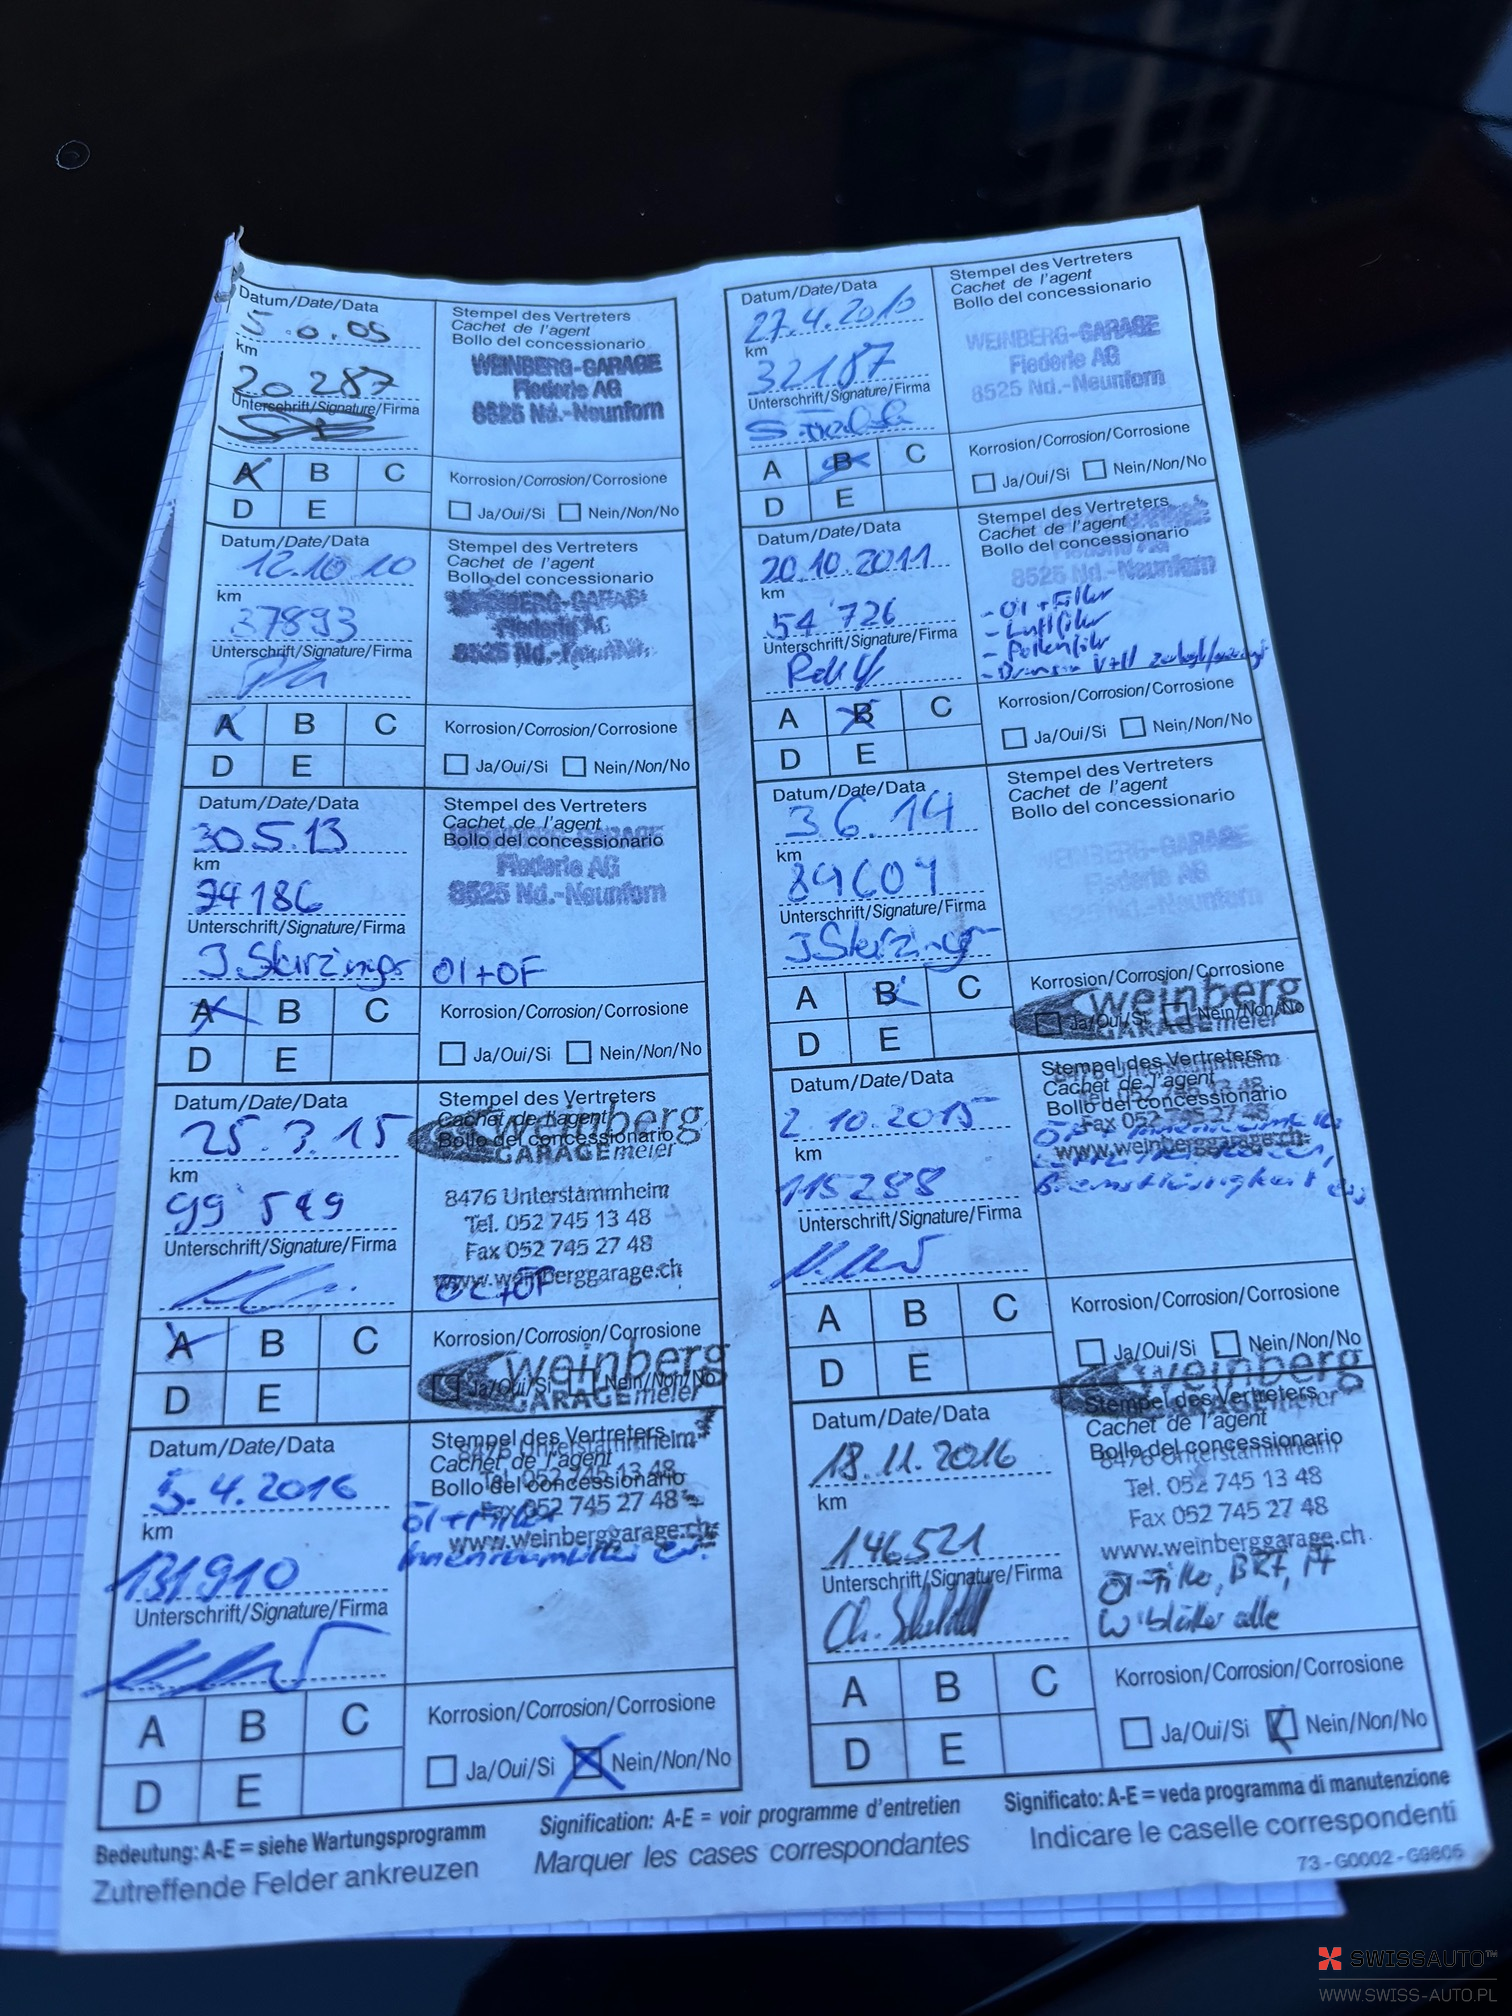 Datum/Date/Data
5.0.05
km
20287
Unterschrift/Signature/Firma
Stempel des Vertreters
Cachet de l'agent
Bollo del concessionario
WEINBERG-GARAGE
Fiederle AG
8525 Nd.-Neunforn
A B C
D E
Korrosion/Corrosion/Corrosione
Ja/Oui/Si Nein/Non/No
Datum/Date/Data
27.4.2010
km
32187
Unterschrift/Signature/Firma
Stempel des Vertreters
Cachet de l'agent
Bollo del concessionario
WEINBERG-GARAGE
Fiederle AG
8525 Nd.-Neunforn
A B C
D E
Korrosion/Corrosion/Corrosione
Ja/Oui/Si Nein/Non/No
Datum/Date/Data
12.10.10
km
37893
Unterschrift/Signature/Firma
Stempel des Vertreters
Cachet de l'agent
Bollo del concessionario
Fiederle AG
8525 Nd.-
A B C
D E
Korrosion/Corrosion/Corrosione
Ja/Oui/Si Nein/Non/No
Datum/Date/Data
20.10.2011
km
54'726
Unterschrift/Signature/Firma
Stempel des Vertreters
Cachet de l'agent
Bollo del concessionario
8525 Nd.-Neunforn
- Öl + Filter
- Luftfilter
- Pollenfilter
- V+H
A B C
D E
Korrosion/Corrosion/Corrosione
Ja/Oui/Si Nein/Non/No
Datum/Date/Data
30.5.13
km
74186
Unterschrift/Signature/Firma
J. Skirzinger
Stempel des Vertreters
Cachet de l'agent
Bollo del concessionario
WEINBERG-GARAGE
Fiederle AG
8525 Nd.-Neunforn
Öl+ÖF
A B C
D E
Korrosion/Corrosion/Corrosione
Ja/Oui/Si Nein/Non/No
Datum/Date/Data
3.6.14
km
89604
Unterschrift/Signature/Firma
J Skirzinger
Stempel des Vertreters
Cachet de l'agent
Bollo del concessionario
WEINBERG-GARAGE
Fiederle AG
8525 Nd.-Neunforn
A B C
D E
Korrosion/Corrosion/Corrosione
Ja/Oui/Si Nein/Non/No
Datum/Date/Data
25.3.15
km
99'549
Unterschrift/Signature/Firma
Stempel des Vertreters
Cachet de l'agent
Bollo del concessionario
weinberg
GARAGEmeier
8476 Unterstammheim
Tel. 052 745 13 48
Fax 052 745 27 48
www.weinberggarage.ch
ÖL+ÖF
A B C
D E
Korrosion/Corrosion/Corrosione
Ja/Oui/Si Nein/Non/No
weinberg
GARAGEmeier
Datum/Date/Data
2.10.2015
km
115288
Unterschrift/Signature/Firma
Stempel des Vertreters
Cachet de l'agent
Bollo del concessionario
8476 Unterstammheim
Tel. 052 745 13 48
Fax 052 745 27 48
www.weinberggarage.ch
Bremsflüssigkeit
A B C
D E
Korrosion/Corrosion/Corrosione
Ja/Oui/Si Nein/Non/No
weinberg
GARAGEmeier
Datum/Date/Data
5.4.2016
km
131910
Unterschrift/Signature/Firma
Stempel des Vertreters
Cachet de l'agent
Bollo del concessionario
weinberg
GARAGEmeier
8476 Unterstammheim
Tel. 052 745 13 48
Fax 052 745 27 48
www.weinberggarage.ch
Öl + Filter
Innenraumfilter
A B C
D E
Korrosion/Corrosion/Corrosione
Ja/Oui/Si Nein/Non/No
Datum/Date/Data
18.11.2016
km
146521
Unterschrift/Signature/Firma
Stempel des Vertreters
Cachet de l'agent
Bollo del concessionario
8476 Unterstammheim
Tel. 052 745 13 48
Fax 052 745 27 48
www.weinberggarage.ch
Öl-Filter, BRF, PF
W'blätter alle
A B C
D E
Korrosion/Corrosion/Corrosione
Ja/Oui/Si Nein/Non/No
Bedeutung: A-E = siehe Wartungsprogramm
Zutreffende Felder ankreuzen
Signification: A-E = voir programme d'entretien
Marquer les cases correspondantes
Significato: A-E = veda programma di manutenzione
Indicare le caselle correspondenti
73-G0002-G9806
SWISSAUTO™
WWW.SWISS-AUTO.PL